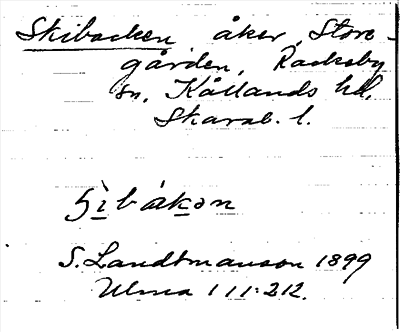 Skibacken åker, Store-
gården, Rackeby
sn, Kållands hd,
Skarab. l.
S. Landtmanson 1899
Ulma 111:212.